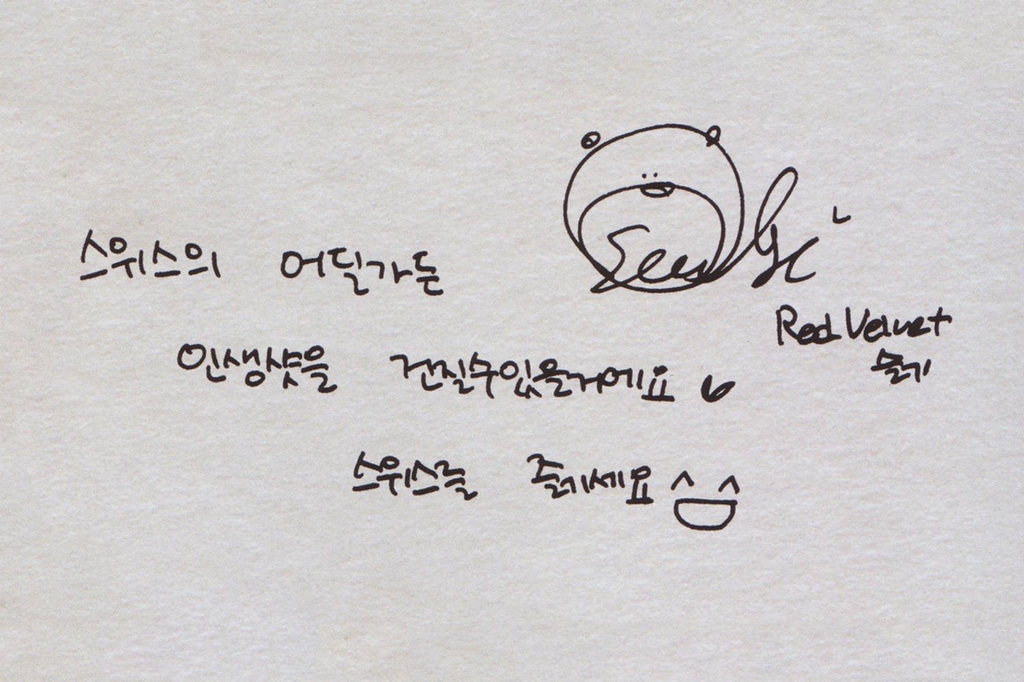 스위스의 어딜가든
Seulgi
Red Velvet
슬기
인생샷을 건질수있을거에요
스위스를 즐기세요